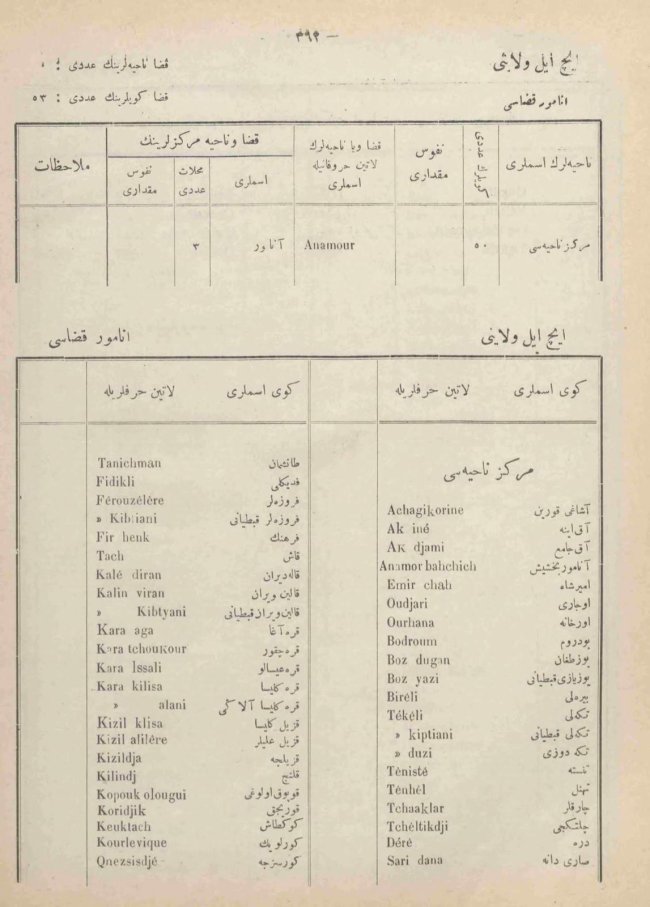 — ٣٩٢ —
ایچ ایل ولایتی
قضا ناحیه‌لرینك عددی : ٠
انامور قضاسی
قضا كویلرینك عددی : ٥٣
ناحیه‌لرك اسملری
كویلرك عددی
نفوس مقداری
قضا ویا ناحیه‌لرك لاتین حروفاتیله اسملری
قضا وناحیه مركزلرینك
اسملری
محلات عددی
نفوس مقداری
ملاحظات
مركز ناحیه‌سی ٥٠ Anamour ٣
ایچ ایل ولایتی
انامور قضاسی
كوی اسملری لاتین حرفلریله
مركز ناحیه‌سی
Achagikorine آشاغی قورین
Ak iné آق اینه
Ak djami آق جامع
Anamor bahchich آنامور بخشیش
Emir chah امیرشاه
Oudjari اوجاری
Ourhana اورخانه
Bodroum بودروم
Boz dugan بوز طغان
Boz yazi بوزیازی قبطیانی
Biréli بیره‌لی
Tékéli تكه‌لی
» kiptiani تكه‌لی قبطیانی
» duzi تكه دوزی
Tènisté تنسته
Ténhél تهنل
Tchaaklar چارقلر
Tchéltikdji چلتكجی
Déré دره
Sari dana صاری دانه
كوی اسملری لاتین حرفلریله
Tanichman طانشمان
Fidikli فدیكلی
Férouzélère فروزه‌لر
» Kibtiani فروزه‌لر قبطیانی
Fir henk فرهنك
Tach قاش
Kalé diran قاله دیران
Kalin viran قالین ویران
» Kibtyani قالین ویران قبطیانی
Kara aga قره آغا
Kara tchoukour قره چقور
Kara Issali قره عیسالو
Kara kilisa قره كلیسا
» alani قره كلیسا آلاكی
Kizil klisa قزیل كلیسا
Kizil alilère قزیل علیلر
Kizildja قزیلجه
Kilindj قلنج
Kopouk olougui قوپوق اولوغی
Koridjik قوریجق
Keuktach كوكطاش
Kourlevique كورلویك
Qnezsisdjé كورسزجه